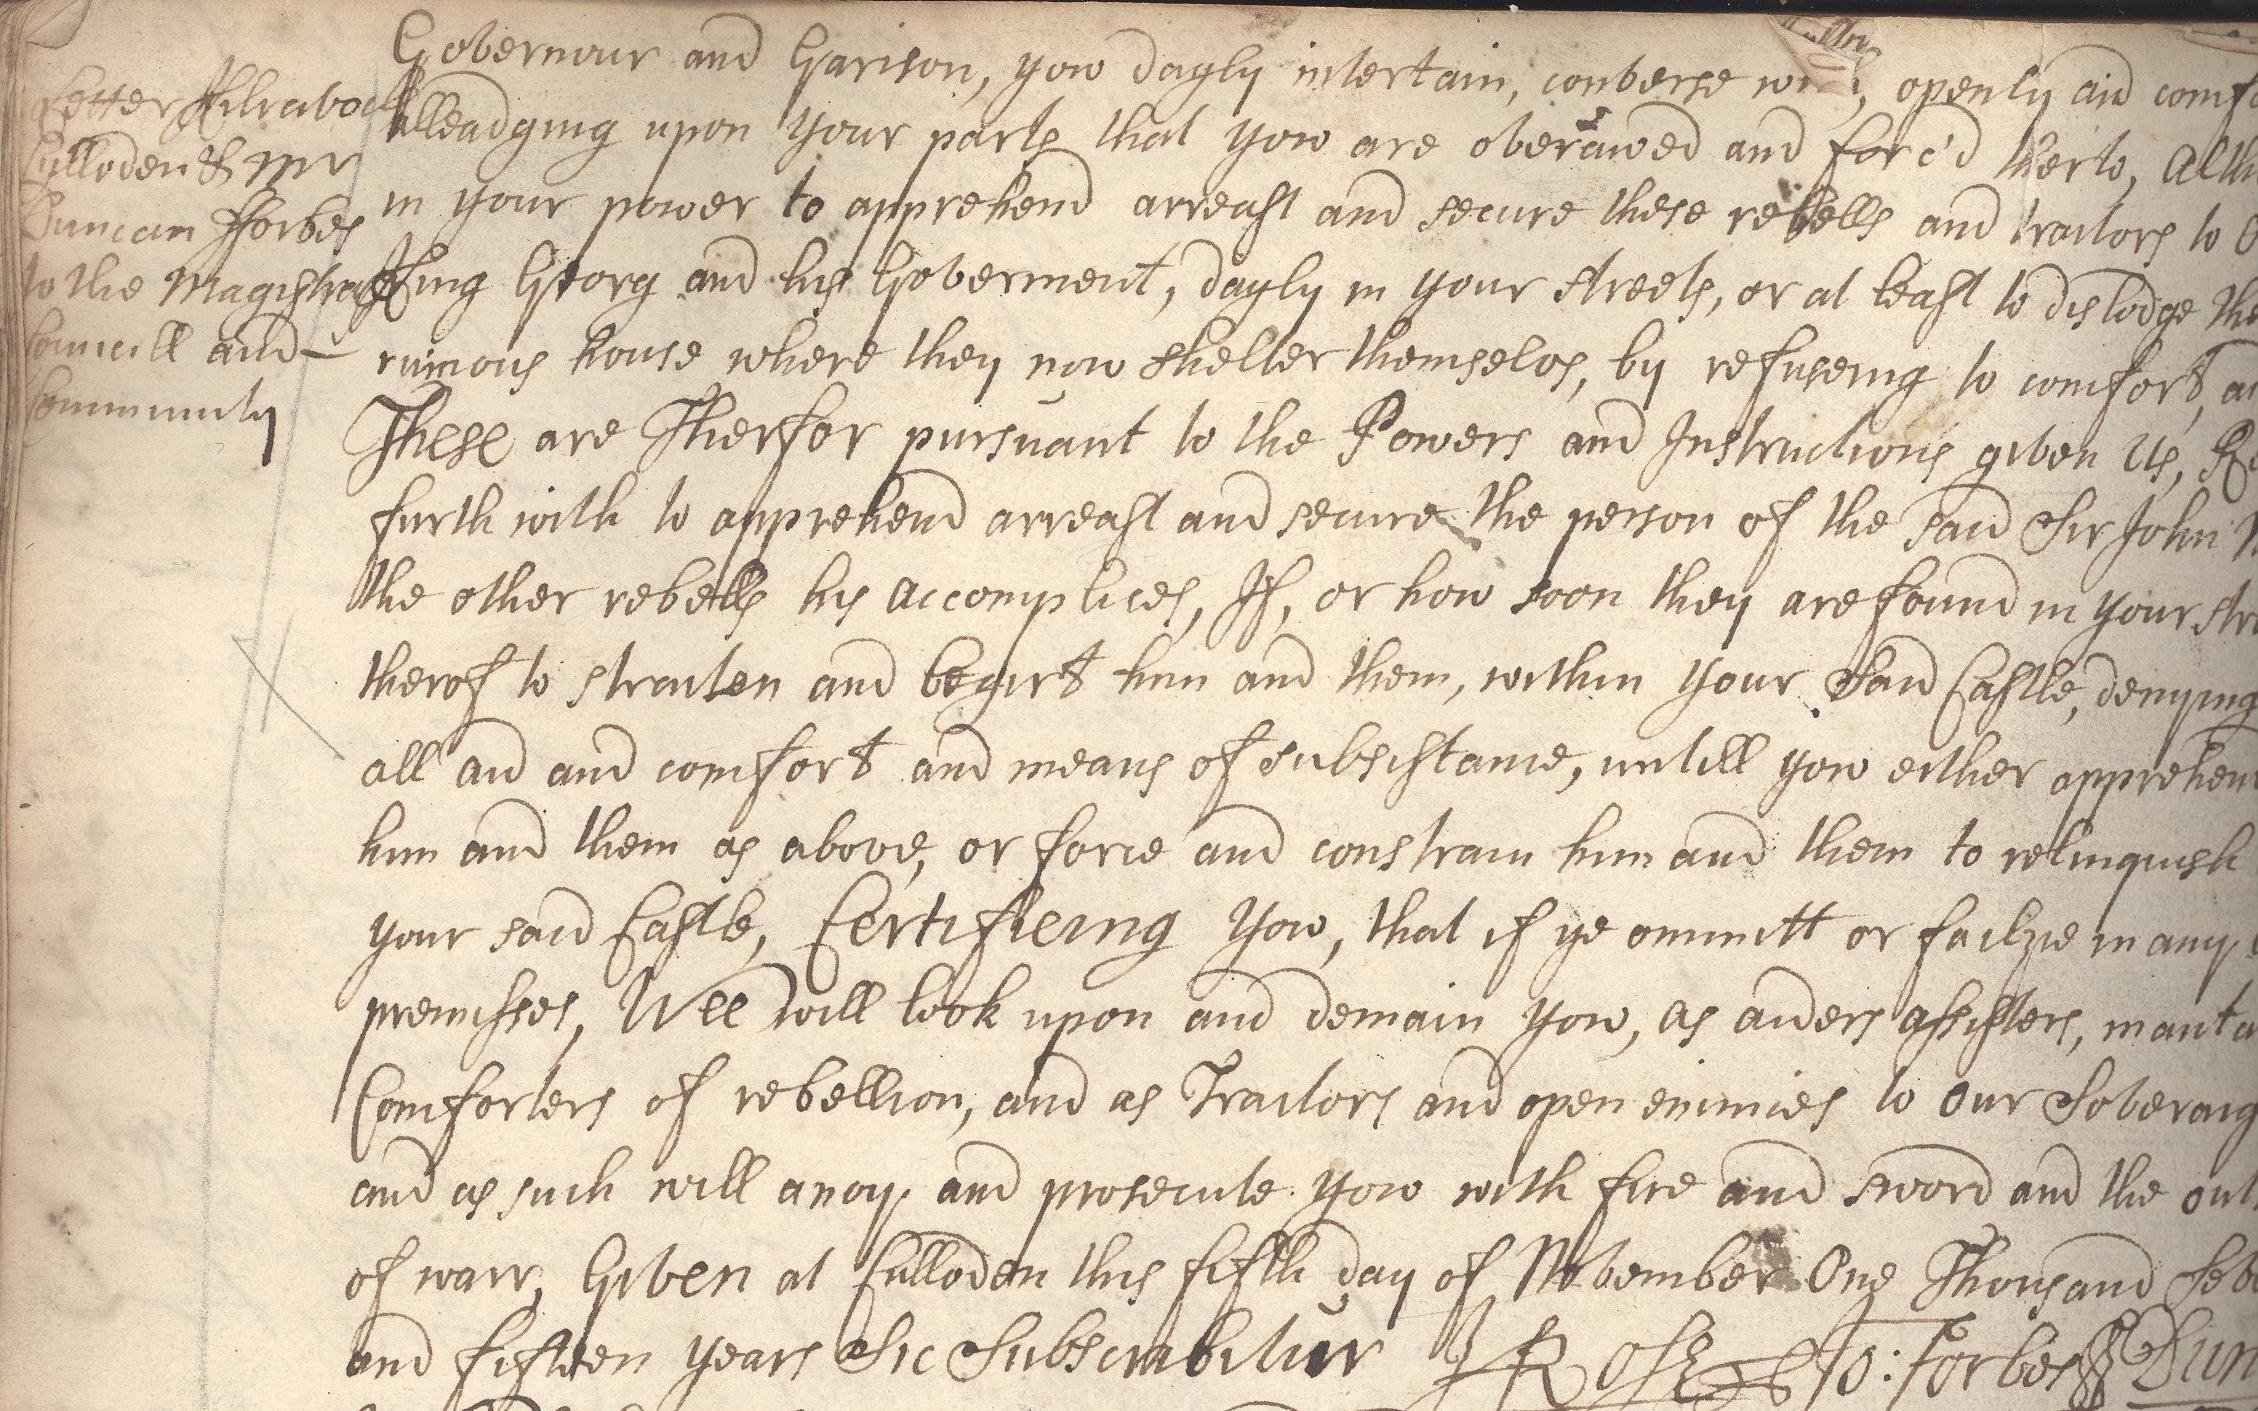 Letter Kilravock
Culloden & Mr
Duncan Fforbes
to the Magistrats
Councill and
Community
Governour and Garison, yow dayly intertain, converse with, openly aid comfo
alleadging upon your parts that yow are overawed and forc'd therto, Altho
in your power to apprehend arreast and secure these rebells and traitors to O
King Georg and his Goverment, dayly in your streets, or at least to dislodge the
ruinous house where they now shelter themselvs, by refuseing to comfort, a
These are Therfor pursuant to the Powers and Instructions given Us, Re
furth with to apprehend arreast and secure the person of the said Sir John M
the other rebells his accomplices, If, or how soon they are found in your stre
therof to straiten and begirt him and them, within your Said Castle, denying
all aid and comfort and means of subsistance, untill yow either apprehend
him and them as above, or force and constrain him and them to relinquish
your said Castle, Certifieing Yow, that if ye ommitt or failzie in any
premisses, Wee will look upon and demain yow, as aiders assisters, mantai
Comforters of rebellion, and as Traitors and open enimies to our Soveraig
and as such will anoy and prosecute yow with fire and sword and the out
of warr, Given at Culloden this fifth day of November One Thousand Seve
and fifteen years Sic Subscribitur H Rose Jo: Forbes Dun